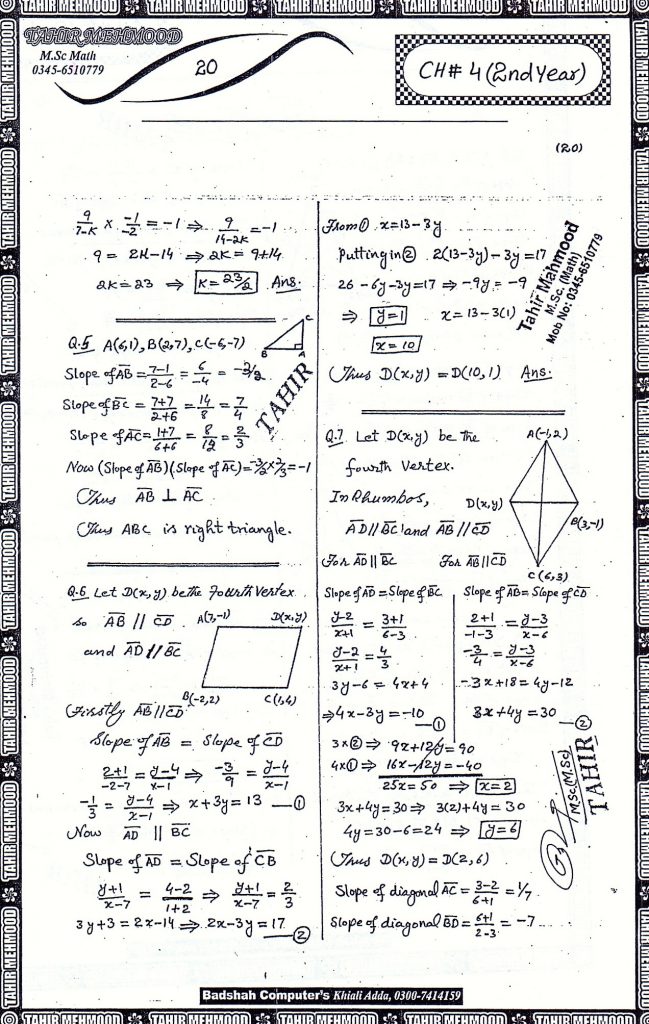 TAHIR MEHMOOD
M.Sc Math
0345-6510779
20
CH# 4 (2nd Year)
(20)
9/(7-K) × -1/-2 = -1 ⇒ 9/(14-2K) = -1
9 = 2K-14 ⇒ 2K = 9+14
2K = 23 ⇒ K = 23/2 Ans.
Q.5 A(6,1), B(2,7), C(-6,-7)
C
B
A
Slope of AB = (7-1)/(2-6) = 6/-4 = -3/2
Slope of BC = (7+7)/(2+6) = 14/8 = 7/4
Slope of AC = (1+7)/(6+6) = 8/12 = 2/3
Now (Slope of AB)(Slope of AC) = -3/2 × 2/3 = -1
Thus AB ⊥ AC
Thus ABC is right triangle.
TAHIR
Q.6 Let D(x,y) be the Fourth Vertex
so AB // CD
and AD // BC
A(7,-1)
D(x,y)
B(-2,2)
C(1,4)
Firstly AB // CD
Slope of AB = Slope of CD
(2+1)/(-2-7) = (y-4)/(x-1) ⇒ -3/9 = (y-4)/(x-1)
-1/3 = (y-4)/(x-1) ⇒ x+3y = 13 —①
Now AD || BC
Slope of AD = Slope of CB
(y+1)/(x-7) = (4-2)/(1+2) ⇒ (y+1)/(x-7) = 2/3
3y+3 = 2x-14 ⇒ 2x-3y = 17 —②
From ① x = 13-3y
Putting in ② 2(13-3y)-3y = 17
26-6y-3y = 17 ⇒ -9y = -9
⇒ y=1 x = 13-3(1)
x = 10
Thus D(x,y) = D(10,1) Ans.
Tahir Mahmood
M.Sc. (Math)
Mob No: 0345-6510779
Q.7 Let D(x,y) be the
fourth Vertex.
In Rhumbos,
AD // BC and AB // CD
A(-1,2)
D(x,y)
B(3,-1)
C(6,3)
For AD || BC
Slope of AD = Slope of BC
(y-2)/(x+1) = (3+1)/(6-3)
(y-2)/(x+1) = 4/3
3y-6 = 4x+4
⇒ 4x-3y = -10 —①
For AB || CD
Slope of AB = Slope of CD
(2+1)/(-1-3) = (y-3)/(x-6)
-3/4 = (y-3)/(x-6)
-3x+18 = 4y-12
3x+4y = 30 —②
3×② ⇒ 9x+12y = 90
4×① ⇒ 16x-12y = -40
25x = 50 ⇒ x = 2
3x+4y = 30 ⇒ 3(2)+4y = 30
4y = 30-6 = 24 ⇒ y = 6
Thus D(x,y) = D(2,6)
Slope of diagonal AC = (3-2)/(6+1) = 1/7
Slope of diagonal BD = (6+1)/(2-3) = -7
M.Sc(M.Sc)
TAHIR
Badshah Computer's Khiali Adda, 0300-7414159